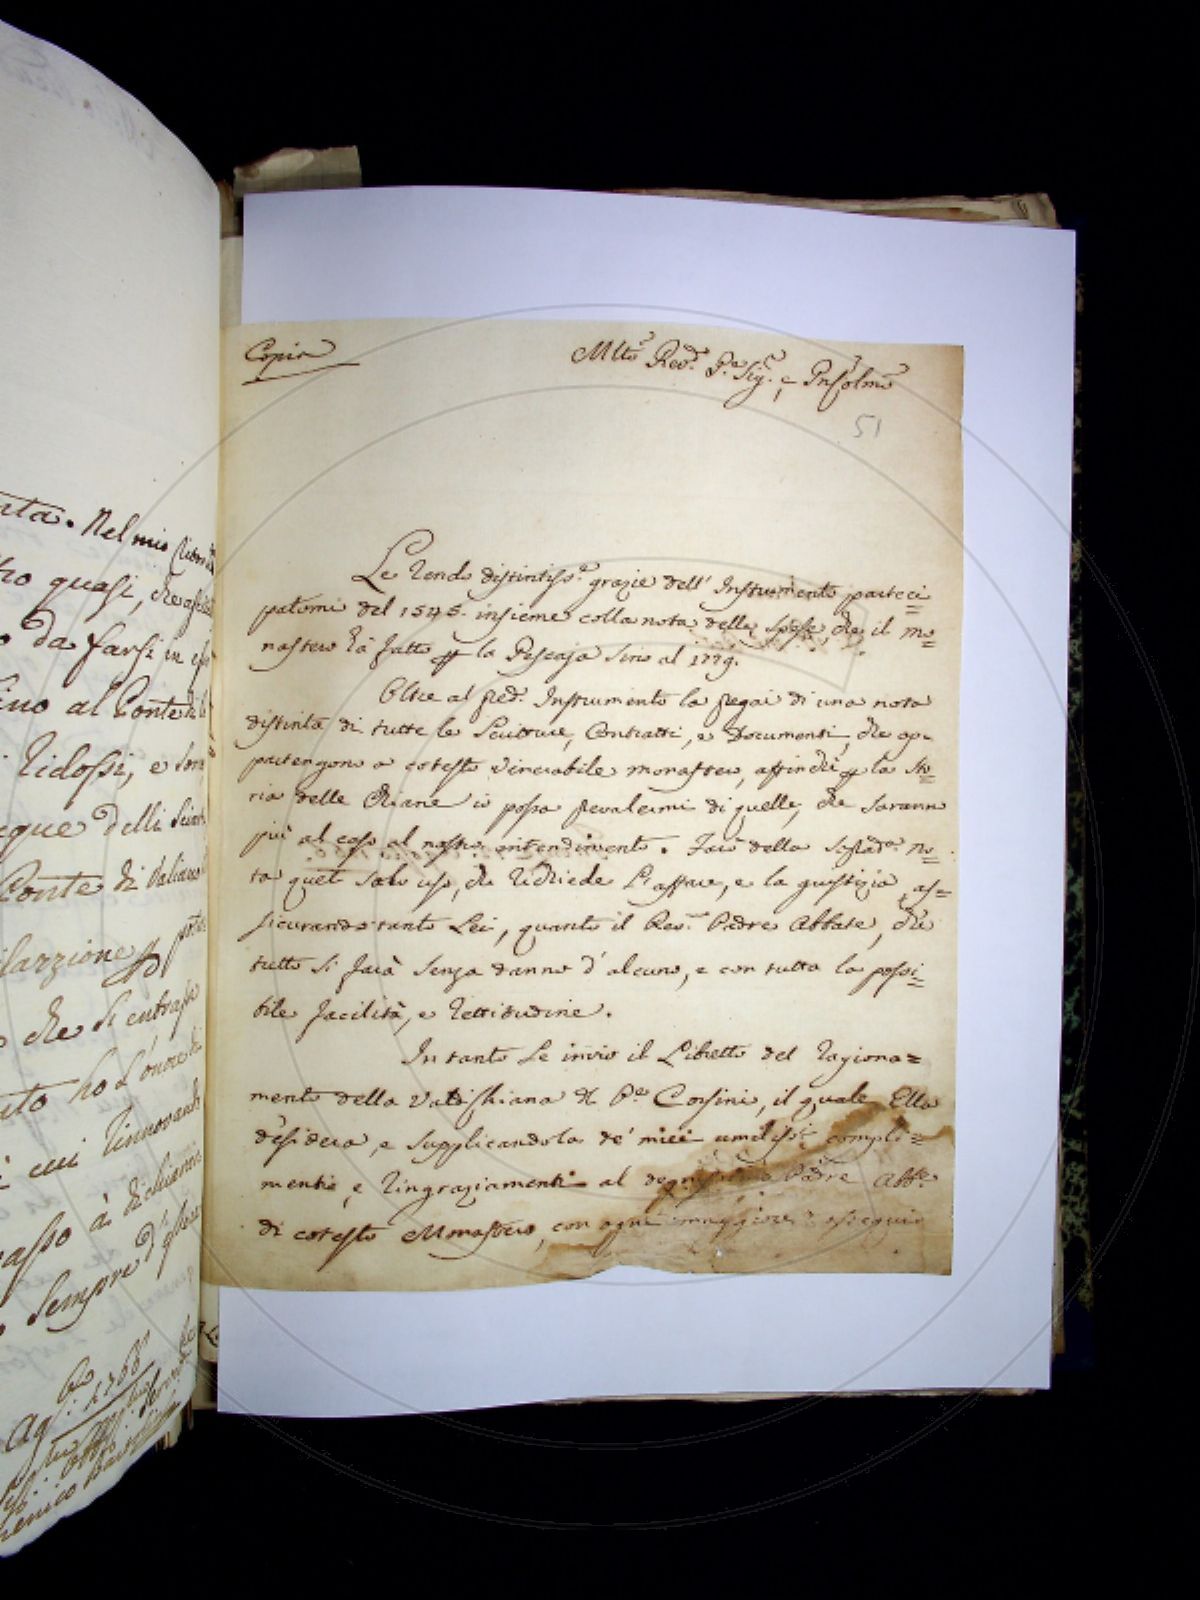 Copia
Mlto Revdo. Pe. Sigr. e Pn Colmo
51
Le rendo distintisse. grazie dell' Instrumento parteci=
patomi del 1545. insieme colla nota delle spese, che il mo=
nastero hà fatto per la Pescaja sino al 1779.
Oltre al pred. Instrumento la pregai di una nota
distinta di tutte le Scritture, Contratti, e Documenti, che ap=
partengono a cotesto venerabile monastero, affinchè per la sto=
ria delle Chiane io possa prevalermi di quelle, che saranno
più al caso al nostro intendimento. Farò della no=
ta quel solo uso, che richiede l'affare, e la giustizia, as=
sicurando tanto Lei, quanto il Revmo. Padre Abbate, che
tutto si farà senza danno d'alcuno, e con tutta la possi=
bile facilità, e rettitudine.
In tanto Le invio il Libretto del ragiona=
mento della Valdichiana del Pe. Corsini, il quale Ella
desidera, e supplicandola de' miei umilissi. compli=
menti, e ringraziamenti al degnissimo Padre Abte.
di cotesto Monastero, con ogni maggiore ossequio
nta. Nel mio
tro quasi, che
da farsi in
sino al Conte
Ridossi, e
cque delli
Conte di Valiano
larzione per
che si entrasse
nto ho l'onore di
cui rinnovando
passo à dichiarar
sempre d'esser
Ag. 1768